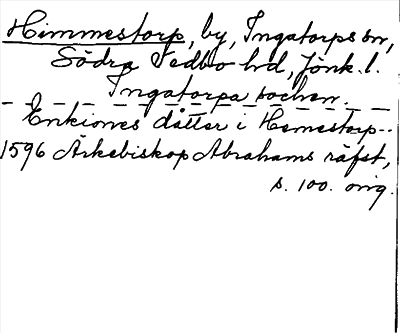 Himmestorp, by, Ingatorps sn,
Södra Vedbo hd, Jönk. l.
Ingatorpa sochen.
Enkiones dåtter i Hemestorp..
1596 Ärkebiskop Abrahams räfst,
s. 100. orig.